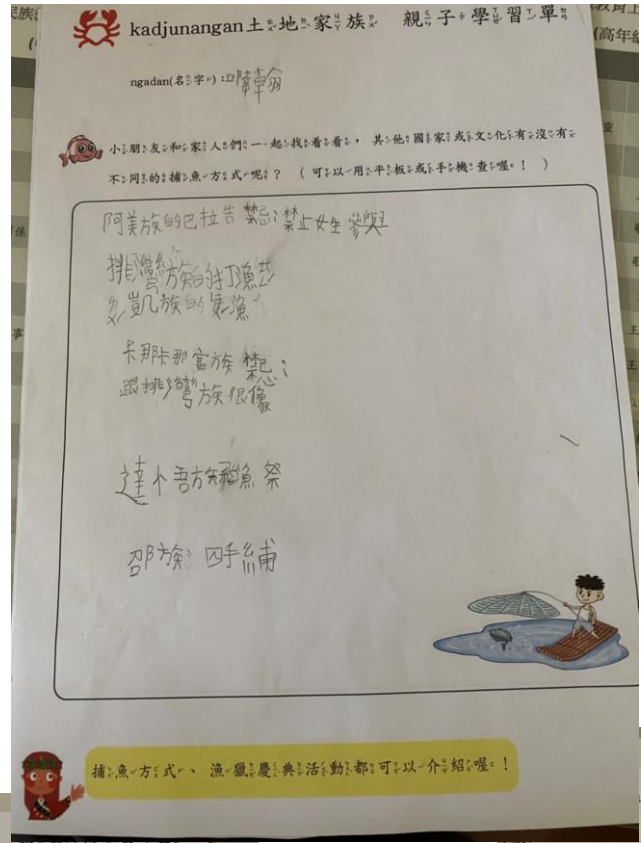 kadjunangan土地家族 親子學習單
ngadan(名字):陳韋翰
小朋友和家人們一起找看看,其他國家或文化有沒有
不同的捕魚方式呢?(可以用平板或手機查喔!)
阿美族的巴拉告 禁忌:禁止女生參與
排灣族的打漁祭
魯凱族的
卡那卡那富族 禁忌:
跟排灣族很像
達卜吾族飛魚祭
邵族: 四手
捕魚方式、漁獵慶典活動都可以介紹喔!